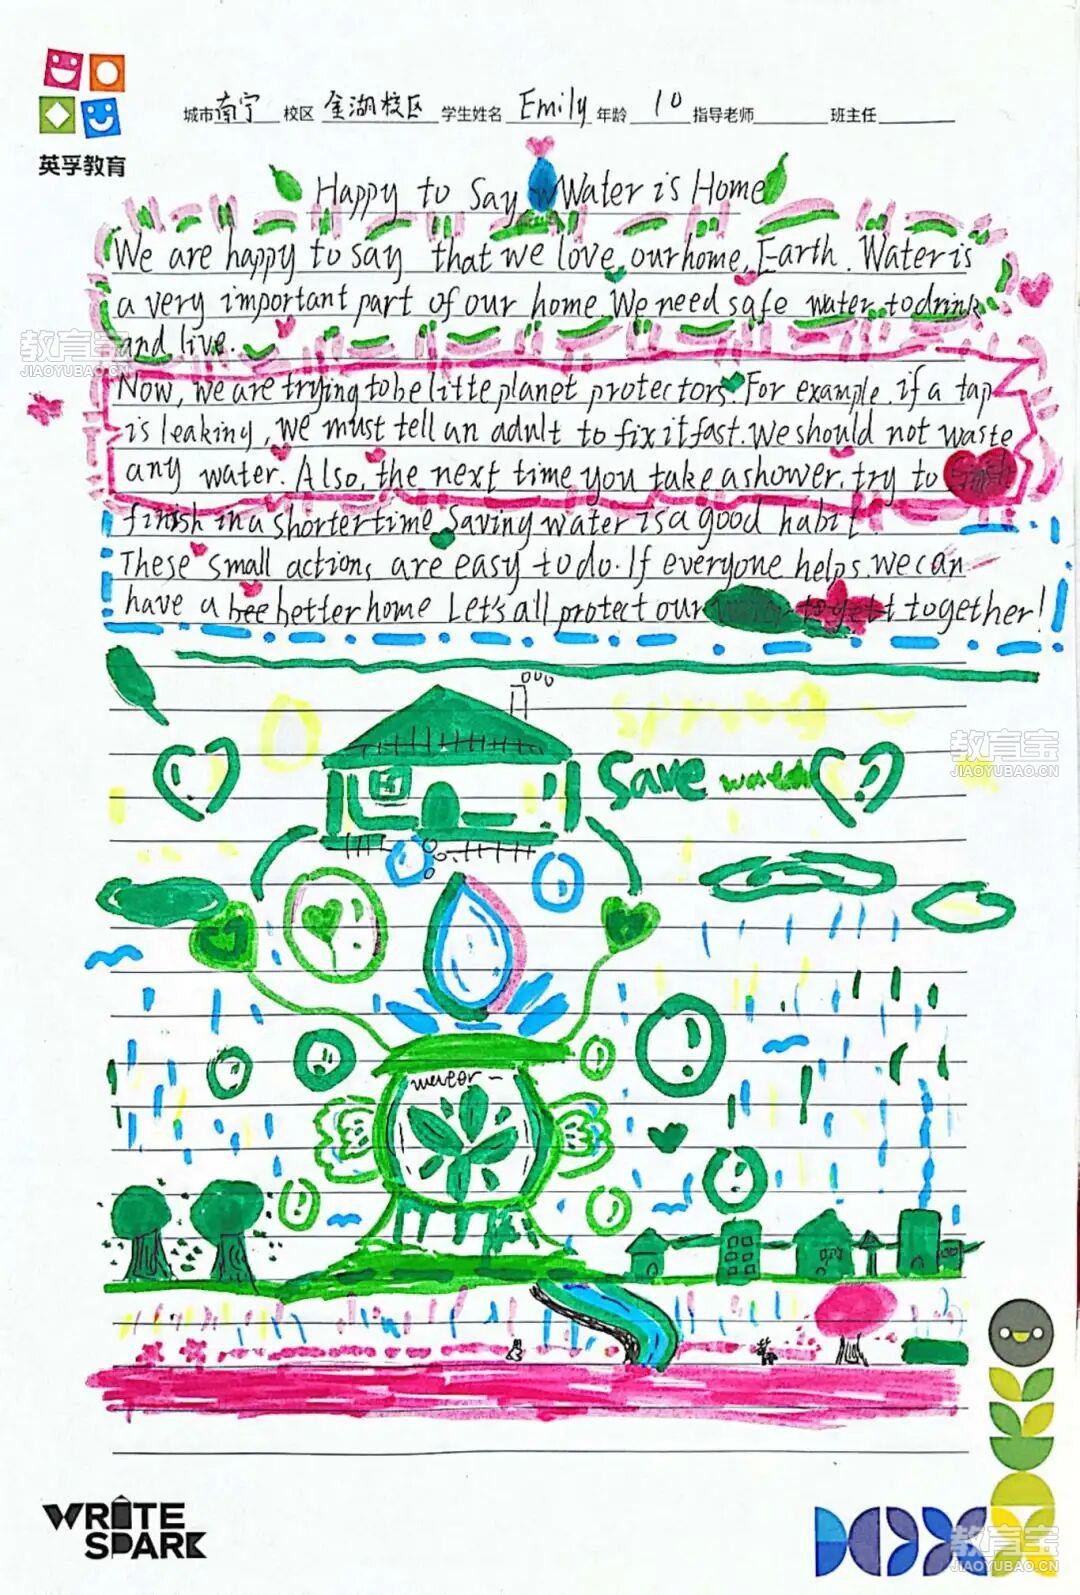 英孚教育
城市 南宁 校区 金湖校区 学生姓名 Emily 年龄 10 指导老师 班主任
Happy to Say Water is Home
We are happy to say that we love our home, Earth. Water is
a very important part of our home. We need safe water to drink
and live.
教育宝
JIAOYUBAO.CN
Now, we are trying to be little planet protectors. For example, if a tap
is leaking, we must tell an adult to fix it fast. We should not waste
any water. Also, the next time you take a shower, try to
finish in a shorter time. Saving water is a good habit.
These small actions are easy to do. If everyone helps, we can
have a bee better home. Let's all protect our together!
spring
Save water
教育宝
JIAOYUBAO.CN
WRITE
SPARK
教育宝
JIAOYUBAO.CN